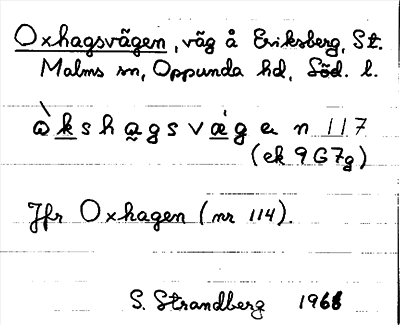 Oxhagsvägen, väg å Eriksberg, St.
Malms sn, Oppunda hd, Söd. l.
ὰkshagsvǽgen 117
(ek 9G7g)
Jfr Oxhagen (nr 114).
S. Strandberg 1968